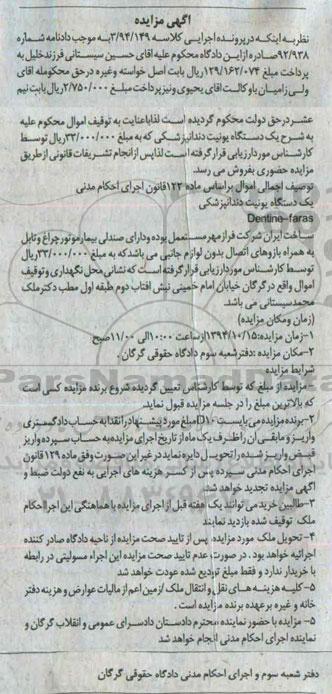 آگهی مزایده
نظر به اینکه در پرونده اجرایی کلاسه ۳/۹۴/۱۴۹ به موجب دادنامه شماره
۹۲/۹۳۸ صادره از این دادگاه محکوم علیه آقای حسین سیستانی فرزند خلیل به
پرداخت مبلغ ۱۲۹/۱۶۲/۰۷۴ ریال بابت اصل خواسته و غیره در حق محکوم له آقای
ولی زامیان با وکالت آقای یحیوی و نیز پرداخت مبلغ ۲/۷۵۰/۰۰۰ ریال بابت نیم
عشر در حق دولت محکوم گردیده است لذا باعنایت به توقیف اموال محکوم علیه
به شرح یک دستگاه یونیت دندانپزشکی که به مبلغ ۳۳/۰۰۰/۰۰۰ ریال توسط
کارشناس مورد ارزیابی قرار گرفته است لذا پس از انجام تشریفات قانونی از طریق
مزایده حضوری بفروش می رسد.
توصیف اجمالی اموال براساس ماده ۱۲۲ قانون اجرای احکام مدنی
یک دستگاه یونیت دندانپزشکی
Dentine-faras
ساخت ایران شرکت فراز مهر مستعمل بوده و دارای صندلی بیمار موتور چراغ و تابل
به همراه بازوهای اتصال بدون لوازم جانبی می باشد که به مبلغ ۳۳/۰۰۰/۰۰۰ ریال
توسط کارشناس مورد ارزیابی قرار گرفته است که نشانی محل نگهداری و توقیف
اموال واقع در گرگان خیابان امام خمینی نبش افتاب دوم طبقه اول مطب دکتر ملک
محمد سیستانی می باشد.
(زمان و مکان مزایده)
۱-زمان مزایده: ۱۳۹۴/۱۰/۱۵ از ساعت ۱۰:۰۰ الی ۱۱/۰۰ صبح
۲-مکان مزایده :دفتر شعبه سوم دادگاه حقوقی گرگان .
شرایط مزایده
۱-مزایده از مبلغ که توسط کارشناس تعیین گردیده شروع برنده مزایده کسی است
که بالاترین مبلغ را در جلسه مزایده قبول نماید.
۲-برنده مزایده می بایست ۱۰٪ مبلغ مورد پیشنهاد را نقدا به حساب دادگستری
واریز و مابقی آن را ظرف یک ماه از تاریخ اجرای مزایده به حساب سپرده واریز
قبض واریز شده را تحویل دایره نماید در غیر این صورت وفق ماده ۱۲۹ قانون
اجرای احکام مدنی سپرده پس از کسر هزینه های اجرایی به نفع دولت ضبط و
آگهی مزایده تجدید خواهد شد.
۳-طالبین خرید می توانند یک هفته قبل از اجرای مزایده با هماهنگی این اجرا احکام
ملک توقیف شده بازدید نمایند
۴- تحویل ملک مورد مزایده, پس از تایید صحت مزایده از ناحیه دادگاه صادر کننده
اجرائیه خواهد بود . در صورت عدم تایید صحت مزایده این اجراء مسولیتی در رابطه
با خریدار ندارد و فقط مبلغ تودیع شده عودت خواهد شد
۵-کلیه هزینه های نقل و انتقال ملک /زمین اعم از مالیات عوارض و هزینه دفتر
خانه و غیره بر عهده برنده مزایده است .
۵- مزایده با حضور نماینده محترم دادستان دادسرای عمومی و انقلاب گرگان و
نماینده اجرای احکام مدنی انجام خواهد شد
دفتر شعبه سوم و اجرای احکام مدنی دادگاه حقوقی گرگان